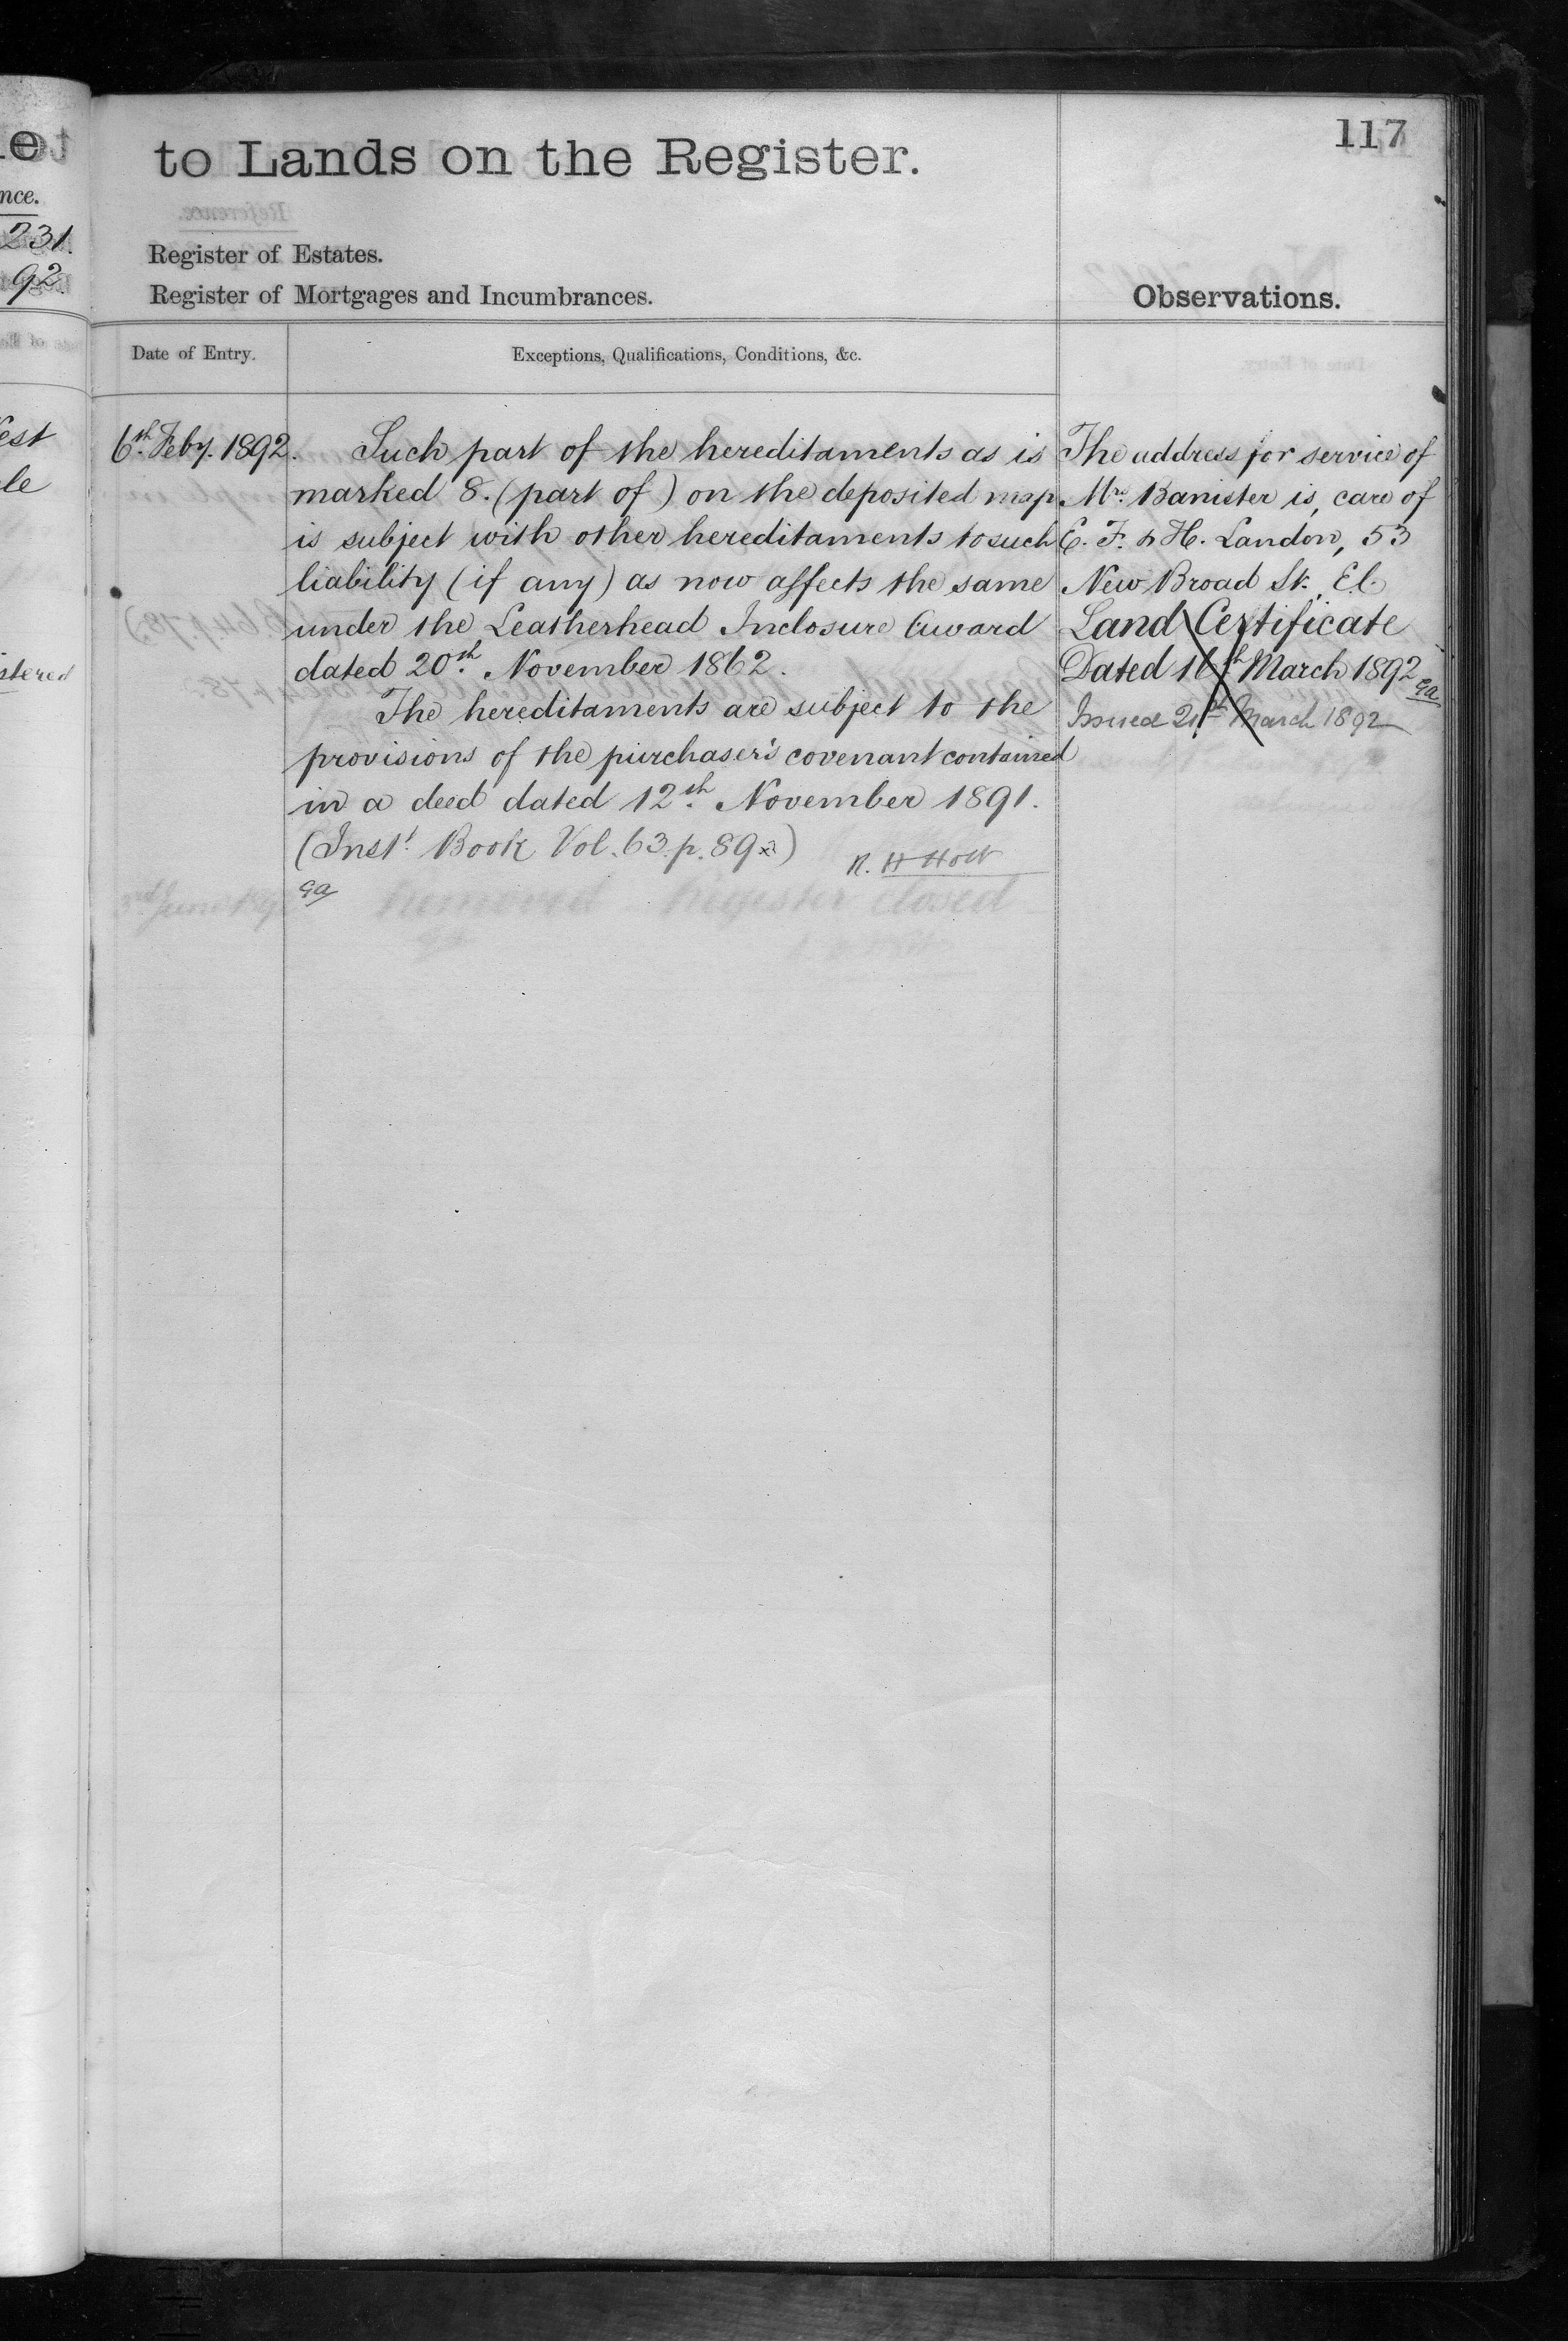 117
to Lands on the Register.
nce.
231.
92.
Register of Estates.
Register of Mortgages and Incumbrances.
Observations.
Date of Entry.
Exceptions, Qualifications, Conditions, &c.
6th Feby. 1892.
Such part of the hereditaments as is
marked 8. (part of) on the deposited map
is subject with other hereditaments to such
liability (if any) as now affects the same
under the Leatherhead Inclosure Award
dated 20th November 1862.
The hereditaments are subject to the
provisions of the purchaser's covenant contained
in a deed dated 12th November 1891.
(Inst. Book Vol. 63. p. 89)
R. H Holt
ga
3rd June 189
Removed Register closed
The address for service of
Mr. Banister is, care of
E. F. & H. Landon, 53
New Broad St., E.C.
Land Certificate
Dated 16th March 1892
ga
Issued 21st March 1892
est
le
stered